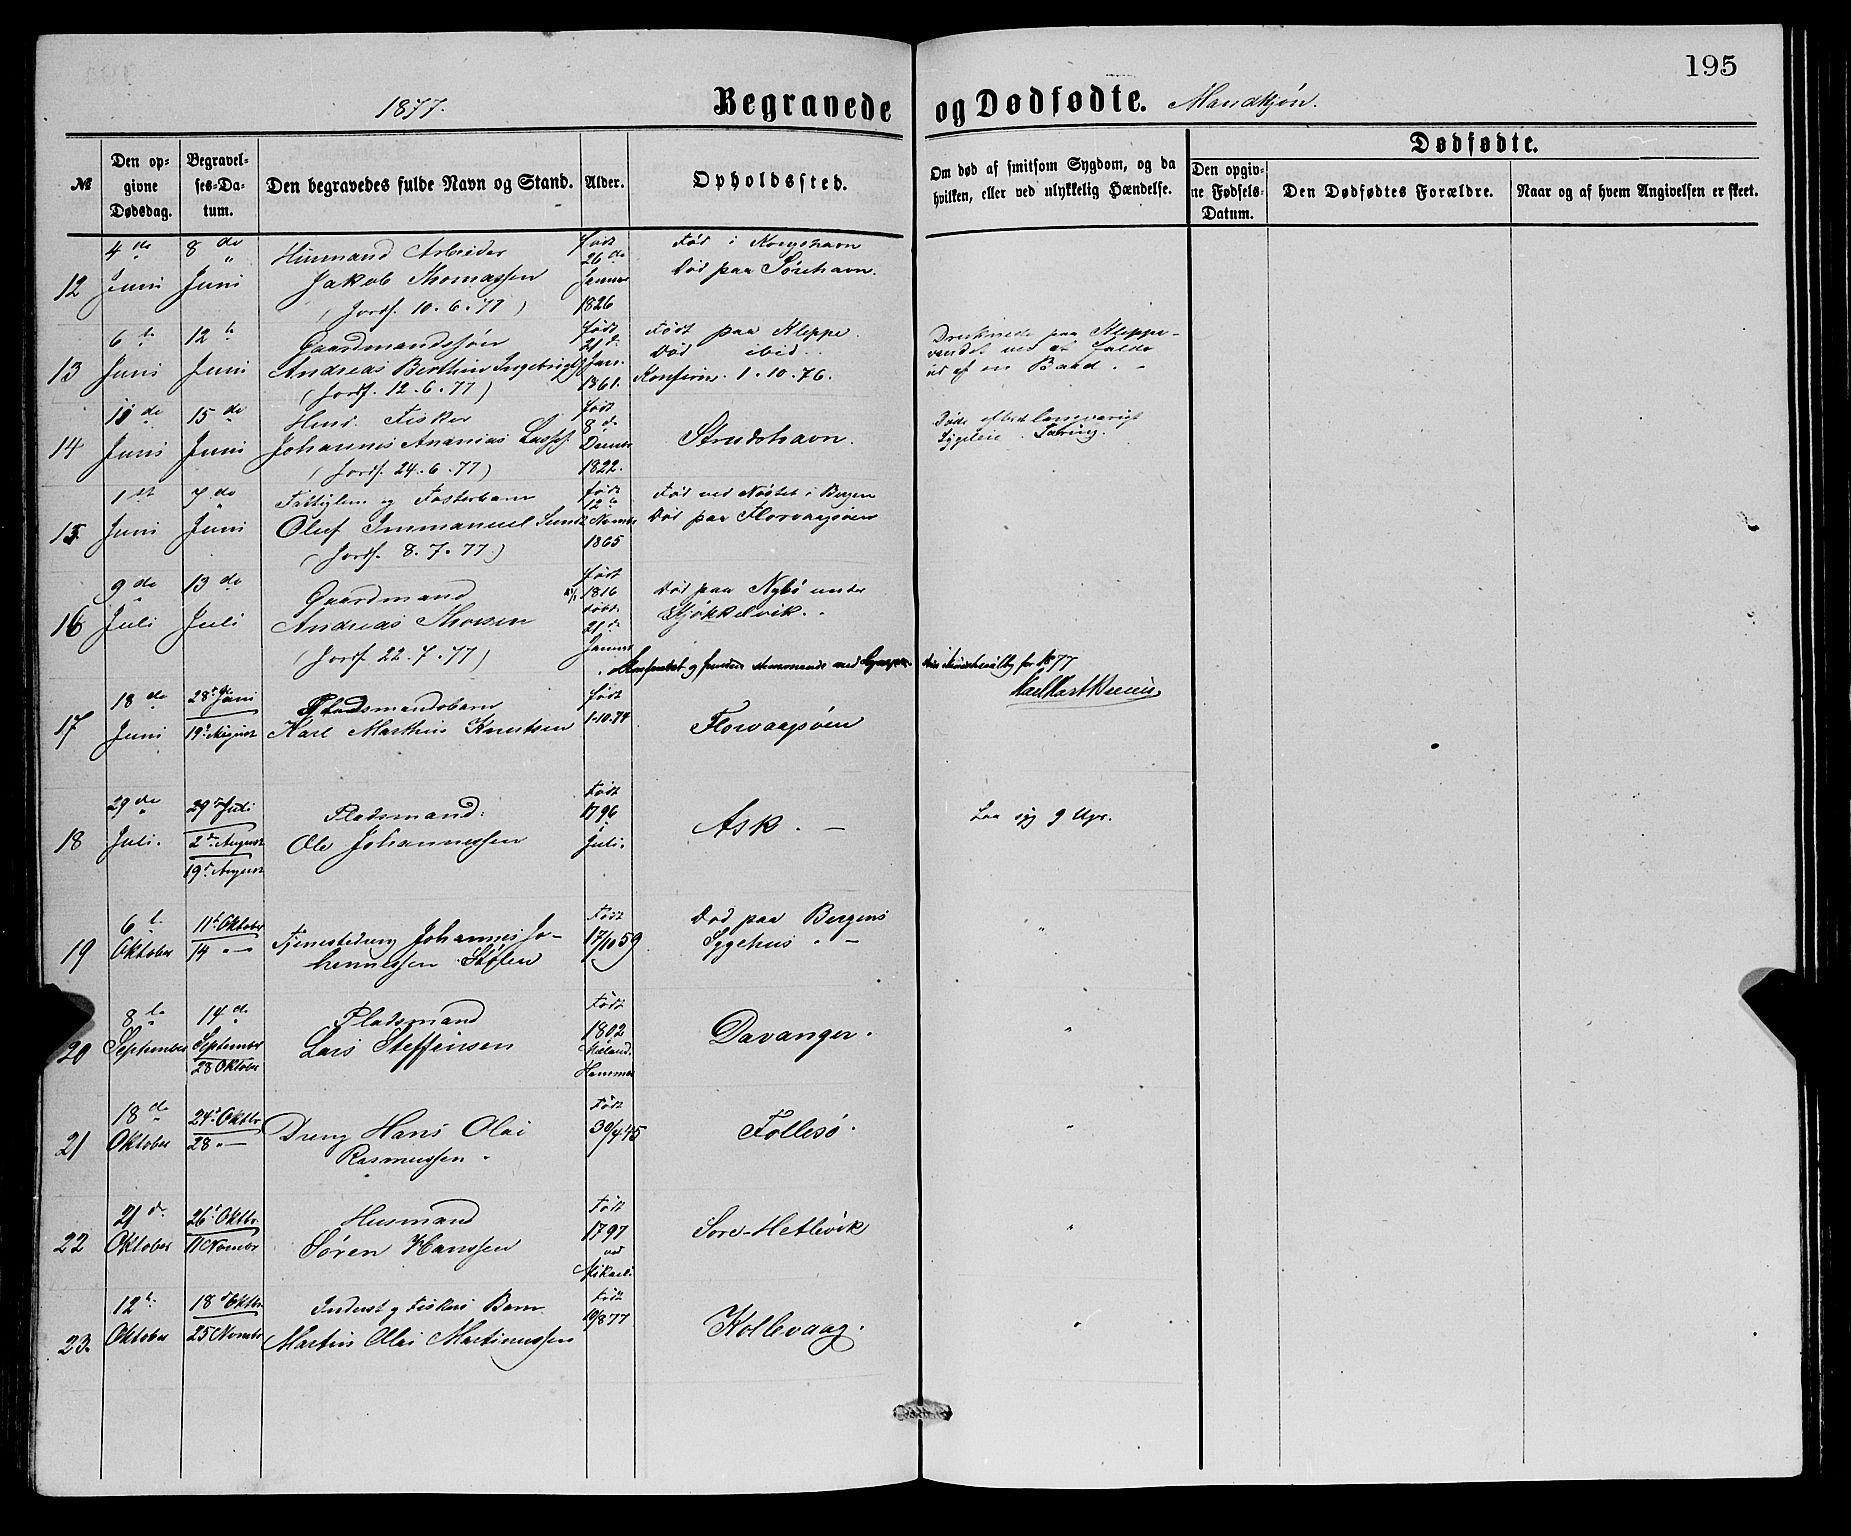 195
1877.
Begravede og Dødfødte. Mandkjøn.
№
Den opgivne Dødsdag.
Begravelses-Datum.
Den begravedes fulde Navn og Stand.
Alder.
Opholdssted.
Om død af smitsom Sygdom, og da hvilken, eller ved ulykkelig Hændelse.
Dødfødte.
Den opgivne Fødsels-Datum.
Den Dødfødtes Forældre.
Naar og af hvem Angivelsen er skeet.
12
4de Juni
8de Juni
Huusmand Arbeider
Jakob Thomassen
(Jordf. 10.6.77)
født 26de Januar 1826
Fød i
Død paa Sørehavn.
13
6te Juni
12te Juni
Gaardmandssøn
Andreas Berthin Ingebrigts
(Jordf. 12.6.77)
født 21de Jan. 1861.
Født paa Kleppe.
Død ibid.
Konfirm. 1.10.76.
Druknede paa Kleppe-
vandet ved at falde
ud af en Baad.
14
de Juni
15de Juni
Fisker
Johannes Ananias
(Jordf. 24.6.77)
født 8de 1822.
Strudshavn.
Døde efter langvarigt
Sygeleie.
15
1ste Juni
7de Juni
og Fosterbarn
Oluf Immanuel
(Jordf. 8.7.77)
født 12te Novmbr 1865
Fød ved Nøstet i Bergen
Død paa Florvaagøen
16
9de Juli
13de Juli
Gaardmand
Andreas Thorsen
(Jordf. 22.7.77)
født 1816 døbt 21de Januar
Død paa Nybø under
Skjøkkelvik.
Konfereret og funden stemmende med for 1877
17
18de Juni
28de Juni
19de August
Pladsmandsbarn
Karl Marthin Knutsen
født 1.10.74
Florvaagøen
18
29de Juli.
29de Juli
2den August
19de August
Pladsmand.
Ole Johannessen
Født 1796 Juli.
Ask. —
Laa syg 9 Uger.
19
6te Oktober
11te Oktober
14 " —
Tjenestedreng Johannes Jo-
hannessen Støten
Født 17/10 59
Død paa Bergens
Sygehus. —
"
20
8de September
14de September
28 Oktober
Pladsmand
Lars Steffensen
Født 1802
Hammer
Davanger.
"
21
18de Oktober
24de Oktbr
28 " —
Dreng Hans Olai
Rasmussen
Født
Follesø.
"
22
21de Oktober
26de Oktbr.
11 Novmbr
Husmand
Søren Hanssen
Født 1797 ved Mikaeli
Søre-Hetlevik
"
23.
12te Oktober
18de Oktbr
25 Novmbr
Inderst og Fiskers Barn.
Martin Olai Martinussen
Født 19/8 77
Kollevaag.
"